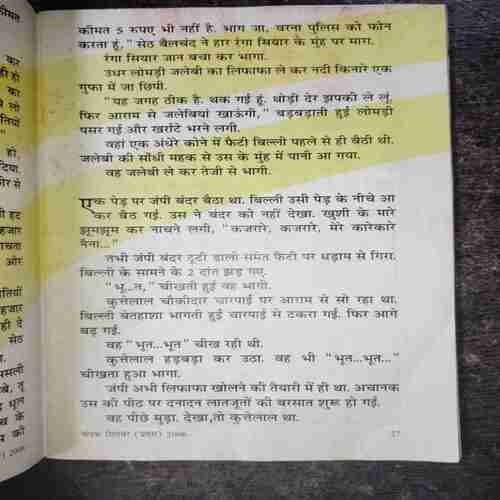 कीमत 5 रुपए भी नहीं है. भाग जा, वरना पुलिस को फोन
करता हूं," सेठ बैलचंद ने हार रंगा सियार के मुंह पर मारा.
रंगा सियार जान बचा कर भागा.
उधर लोमड़ी जलेबी का लिफाफा ले कर नदी किनारे एक
गुफा में जा छिपी.
"यह जगह ठीक है. थक गई हूं. थोड़ी देर झपकी ले लूं,
फिर आराम से जलेबियां खाऊंगी," बड़बड़ाती हुई लोमड़ी
पसर गई और खर्राटे भरने लगी.
वहां एक अंधेरे कोने में फैटी बिल्ली पहले से ही बैठी थी.
जलेबी की सोंधी महक से उस के मुंह में पानी आ गया.
वह जलेबी ले कर तेजी से भागी.
एक पेड़ पर जंपी बंदर बैठा था. बिल्ली उसी पेड़ के नीचे आ
कर बैठ गई. उस ने बंदर को नहीं देखा. खुशी के मारे
झूमझूम कर नाचने लगी, "कजरारे, कजरारे, मेरे कारेकारे
नैना..."
तभी जंपी बंदर टूटी डाली समेत फैटी पर धड़ाम से गिरा.
बिल्ली के सामने के 2 दांत झड़ गए.
"भू...त," चीखती हुई वह भागी.
कुत्तेलाल चौकीदार चारपाई पर आराम से सो रहा था.
बिल्ली बेतहाशा भागती हुई चारपाई से टकरा गई. फिर आगे
बढ़ गई.
वह "भूत...भूत" चीख रही थी.
कुत्तेलाल हड़बड़ा कर उठा. वह भी "भूत...भूत..."
चीखता हुआ भागा.
जंपी अभी लिफाफा खोलने की तैयारी में ही था. अचानक
उस की पीठ पर दनादन लातजूतों की बरसात शुरू हो गई.
वह पीछे मुड़ा. देखा,तो कुत्तेलाल था.
(प्रथम) 2006